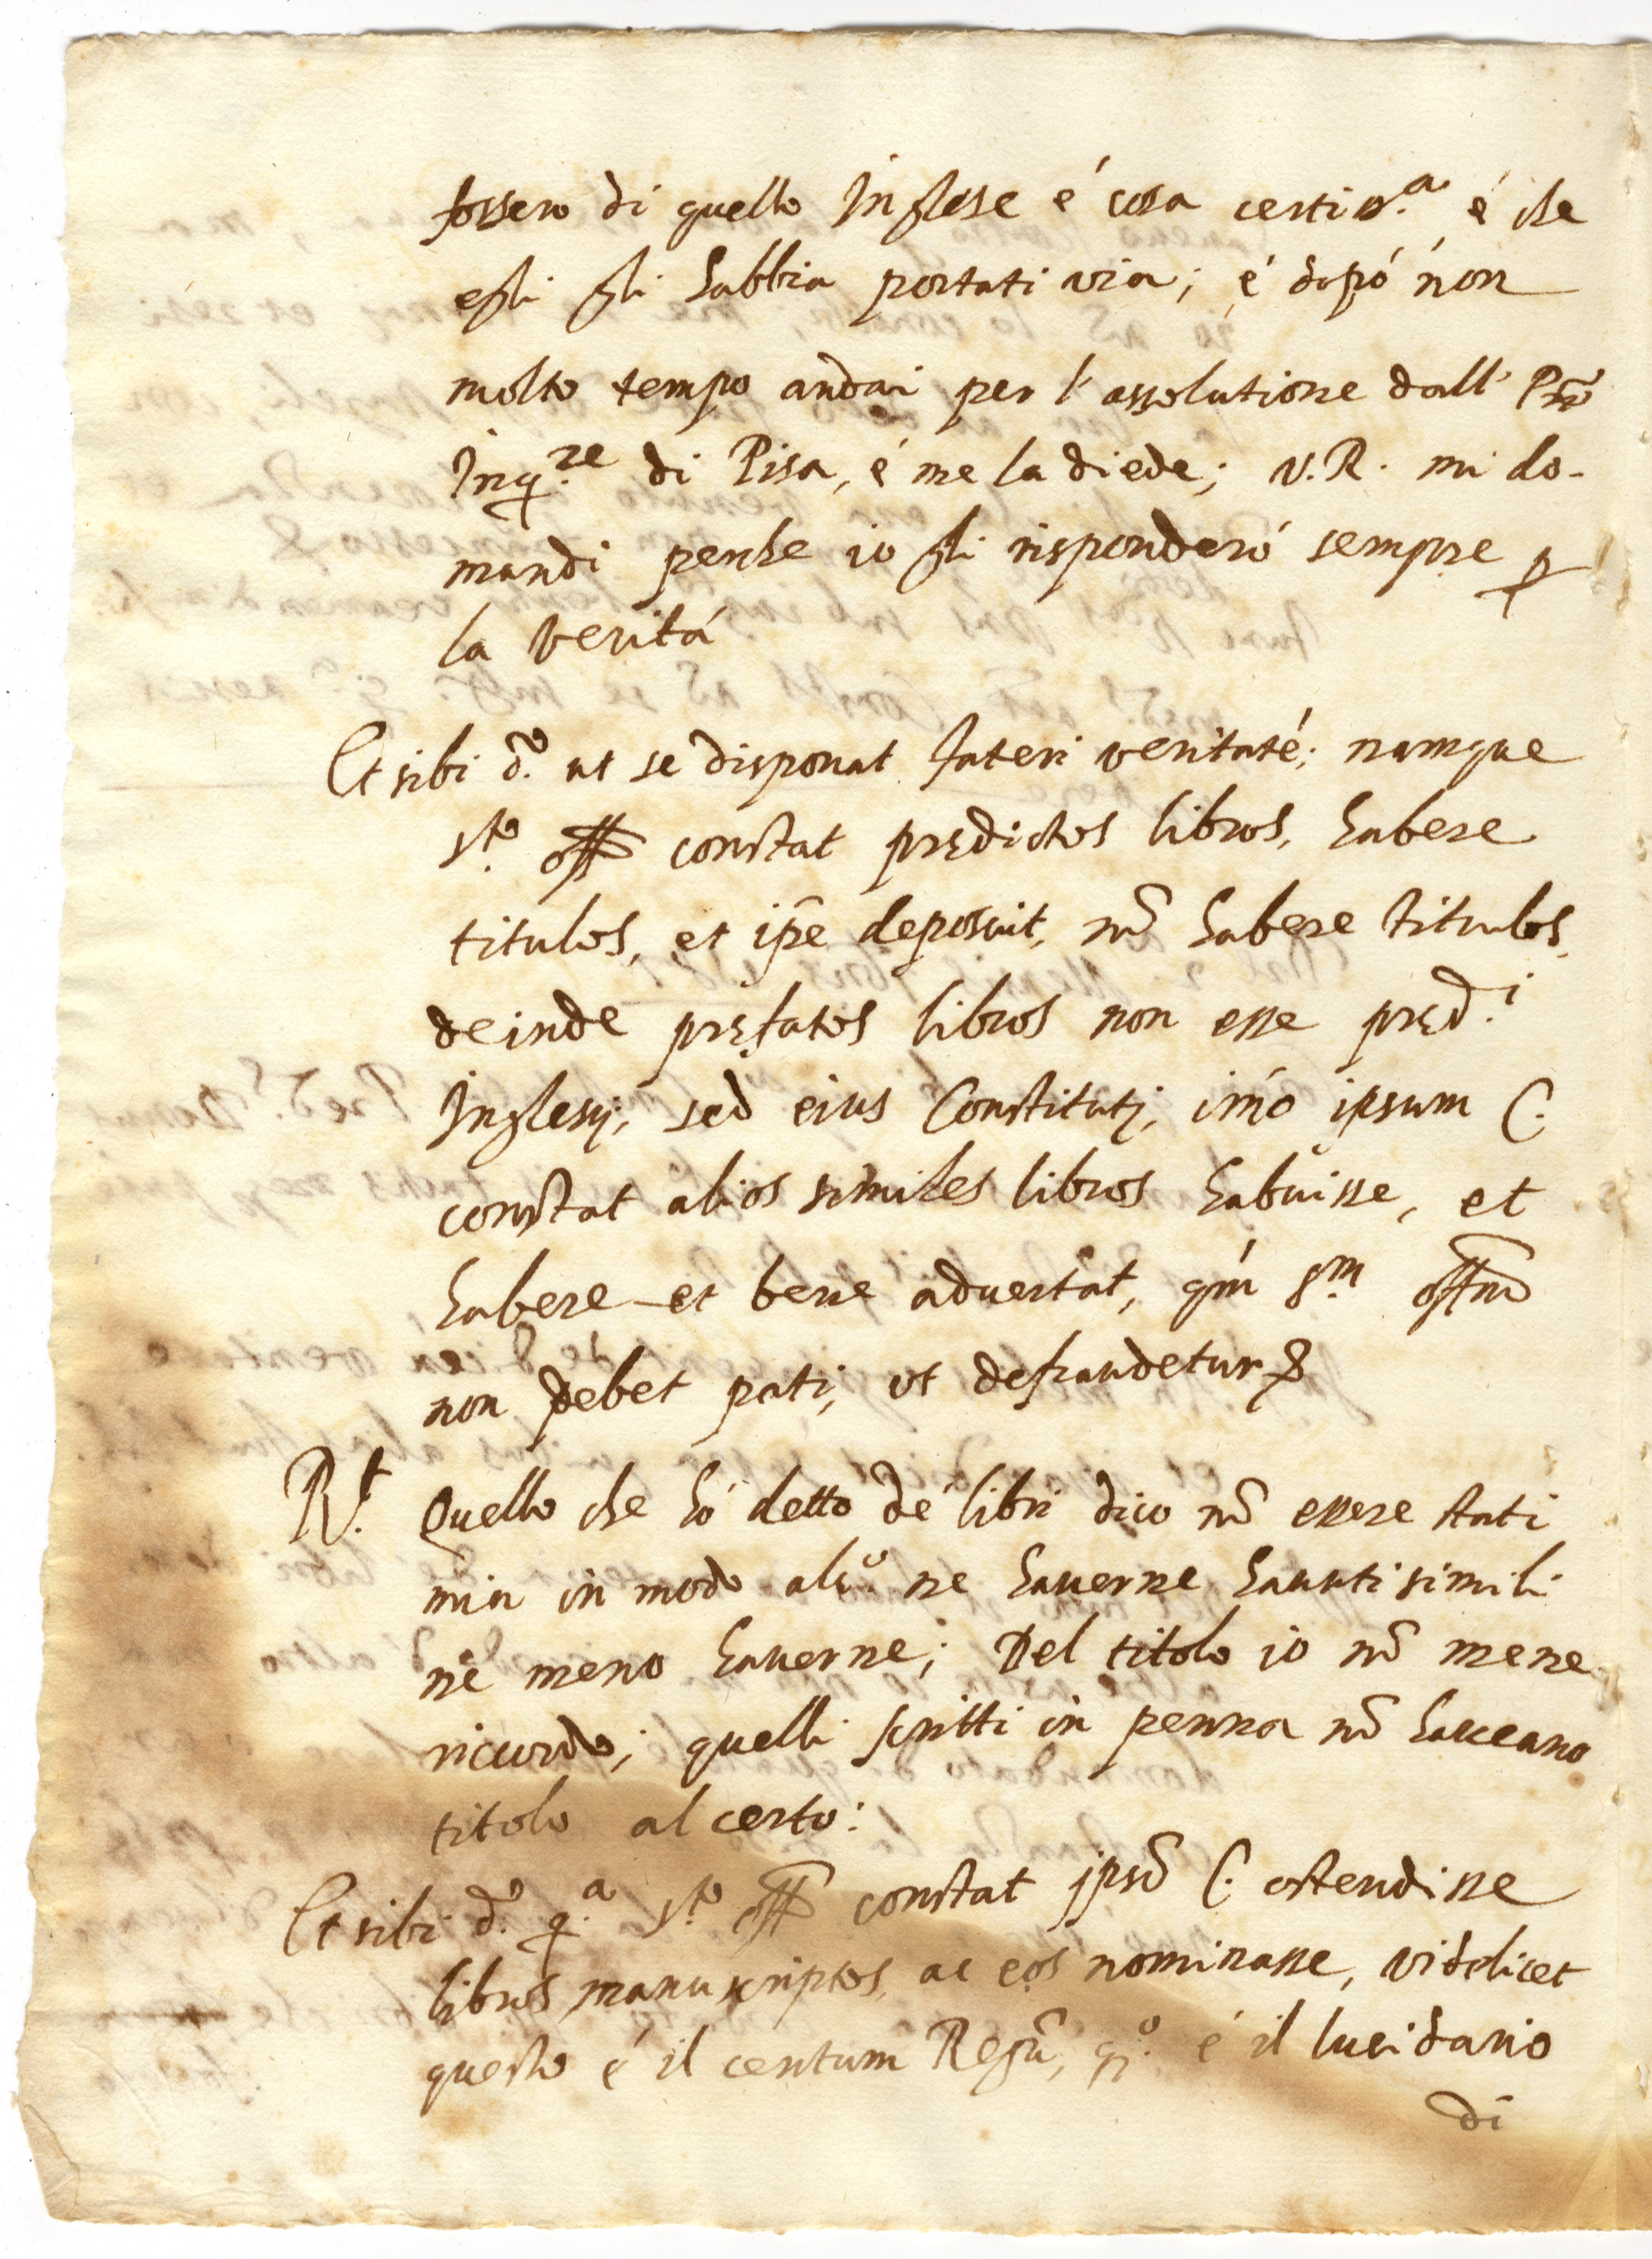 fossero di quello Inglese é cosa certis.ᵃ é che
egli gli habbia portati via; é dopó non
molto tempo andai per l'assolutione dall' Prẽ
Inq.ʳᵉ di Pisa, é me la diede; V.R. mi do-
mandi perche io gli risponderó sempre ꝑ
la veritá
Et sibi d.º ut se disponat fateri veritatẽ; namque
s.ᵗᵒ off.º constat prędictos libros, habere
titulos, et ipẽ deposuit, nõ habere titulos,
deinde pręfatos libros non esse pręd.ⁱ
Inglesij; sed eius Constitutj; imó ipsum C.
constat alios similes libros habuisse, et
habere et bene advertat, qm̃ S.ᵐ offm̃
non debet pati, ut defraudetur &
R.ᵗ Quello che hó detto dé libri dico nõ essere stati
miei in modo alc.º ne haverne havuti simili
né meno haverne; Del titolo io nõ mene
ricordo; quelli scritti in penna nõ haveano
titolo al certo:
Et sibi d.º q.ᵃ s.ᵗᵒ off.º constat ipsũ C. ostendisse
libros manuscriptos, ac eos nominasse, videlicet
questo é il centum Regũ, q.º é il lucidario
di